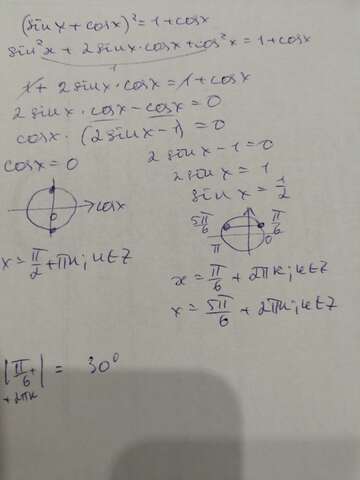 (sin x + cos x)² = 1 + cos x
sin²x + 2 sin x · cos x + cos²x = 1 + cos x
1
1 + 2 sin x · cos x = 1 + cos x
2 sin x · cos x - cos x = 0
cos x · (2 sin x - 1) = 0
cos x = 0
2 sin x - 1 = 0
2 sin x = 1
sin x = 1/2
0
cos x
5π/6
π/6
π
0
x = π/2 + πk; k ∈ Z
x = π/6 + 2πk; k ∈ Z
x = 5π/6 + 2πk; k ∈ Z
|π/6 +| = 30°
+ 2πk